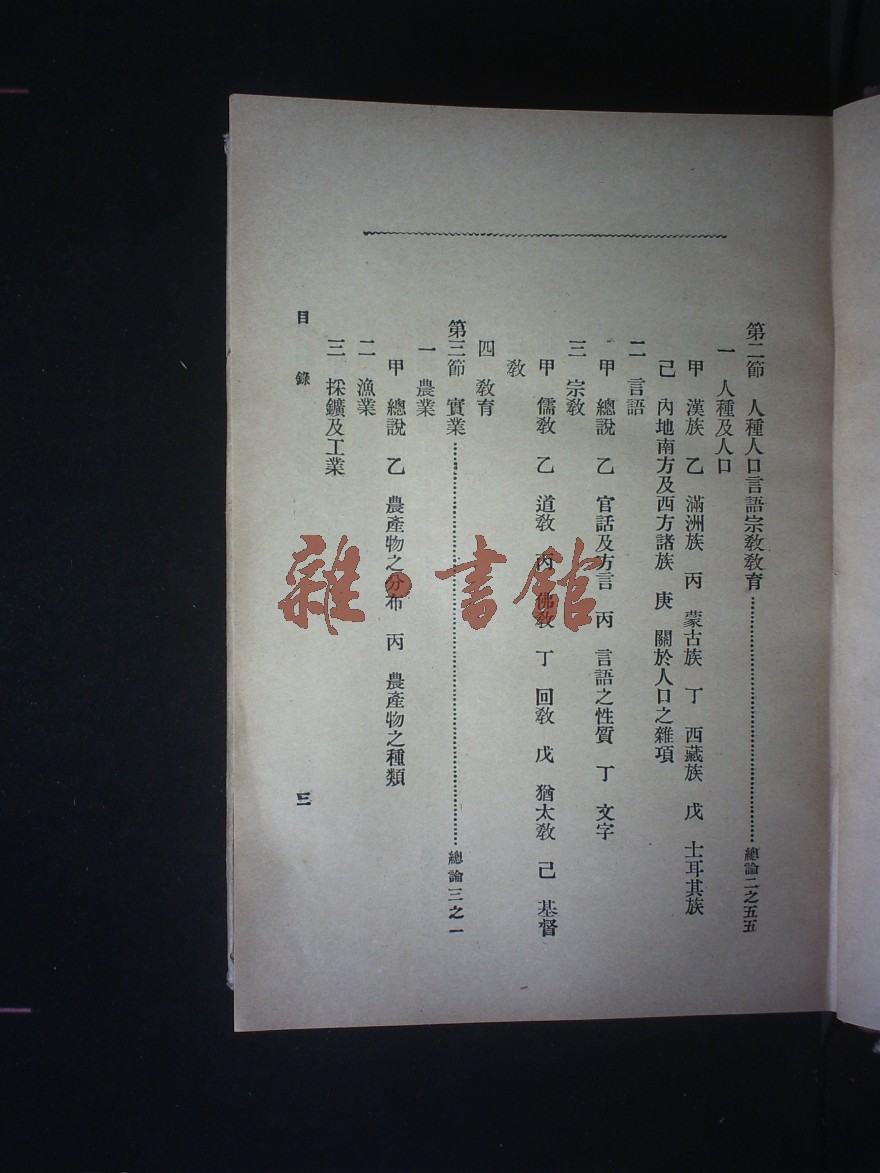 第二節　人種人口言語宗教教育………總論二之五五
一　人種及人口
甲　漢族　乙　滿洲族　丙　蒙古族　丁　西藏族　戊　土耳其族
己　內地南方及西方諸族　庚　關於人口之雜項
二　言語
甲　總說　乙　官話及方言　丙　言語之性質　丁　文字
三　宗教
甲　儒教　乙　道教　丙　佛教　丁　回教　戊　猶太教　己　基督
教
四　教育
第三節　實業………總論三之一
一　農業
甲　總說　乙　農產物之分布　丙　農產物之種類
二　漁業
三　採鑛及工業
目錄
三
雜·書館